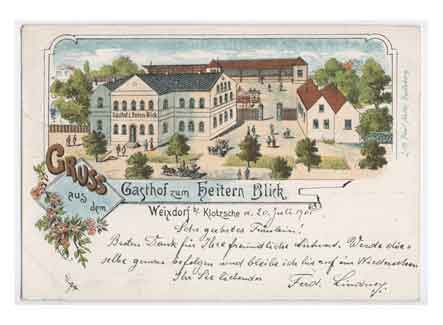 Gasthof z. Heitern Blick
Gruss
aus dem
Gasthof zum Heitern Blick,
Weixdorf b/ Klotzsche d. 20. Juli 1901
Sehr geehrtes Fräulein!
Besten Dank für Ihre freundliche Werde die-
selbe genau befolgen und bleibe ich bis auf ein Wiedersehen
Ihr Sie liebender
Ferd.